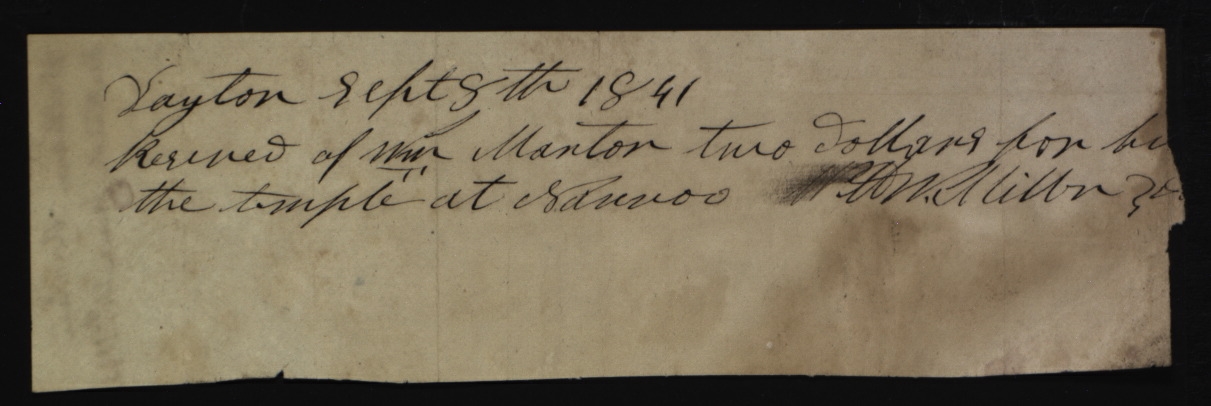 Dayton Sept 8th 1841
Received of Wm Manton two dollars for bu
the temple at Nauvoo H. W. Miller